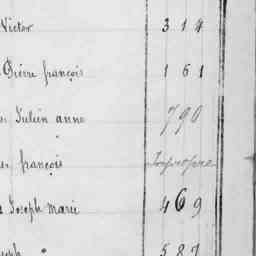 Victor 314
Pierre françois 161
Julien anne 790
françois Impropre
Joseph marie 469
Joseph " 587